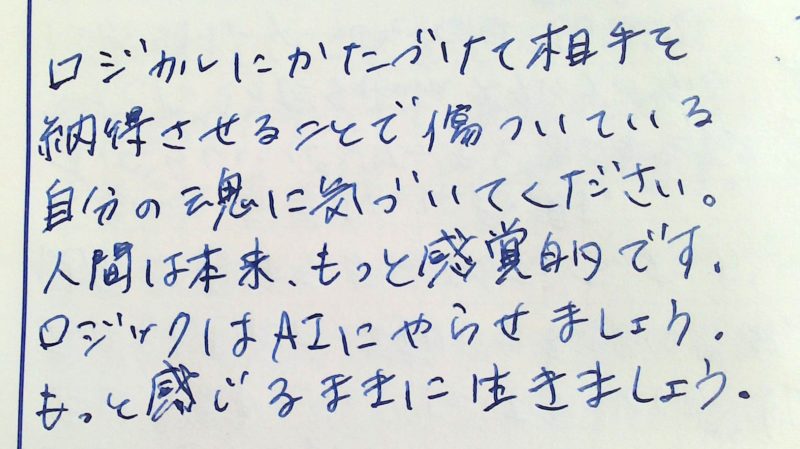 ロジカルにかたづけて相手を
納得させることで傷ついている
自分の魂に気づいてください。
人間は本来、もっと感覚的です。
ロジックはAIにやらせましょう。
もっと感じるままに生きましょう。